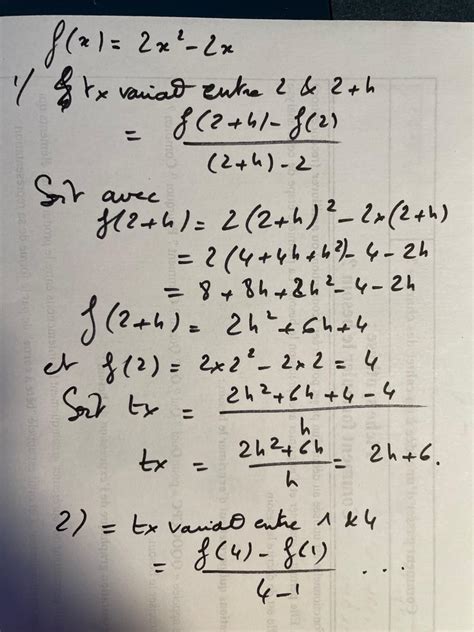 f(x) = 2x² - 2x
1) tx variat° entre 2 & 2+h
= f(2+h) - f(2) / (2+h) - 2
Soit avec
f(2+h) = 2(2+h)² - 2x(2+h)
= 2(4+4h+h²) - 4 - 2h
= 8 + 8h + 2h² - 4 - 2h
f(2+h) = 2h² + 6h + 4
et f(2) = 2x2² - 2x2 = 4
Soit tx = 2h² + 6h + 4 - 4 / h
tx = 2h² + 6h / h = 2h + 6.
2) = tx variat° entre 1 & 4
= f(4) - f(1) / 4 - 1 ...